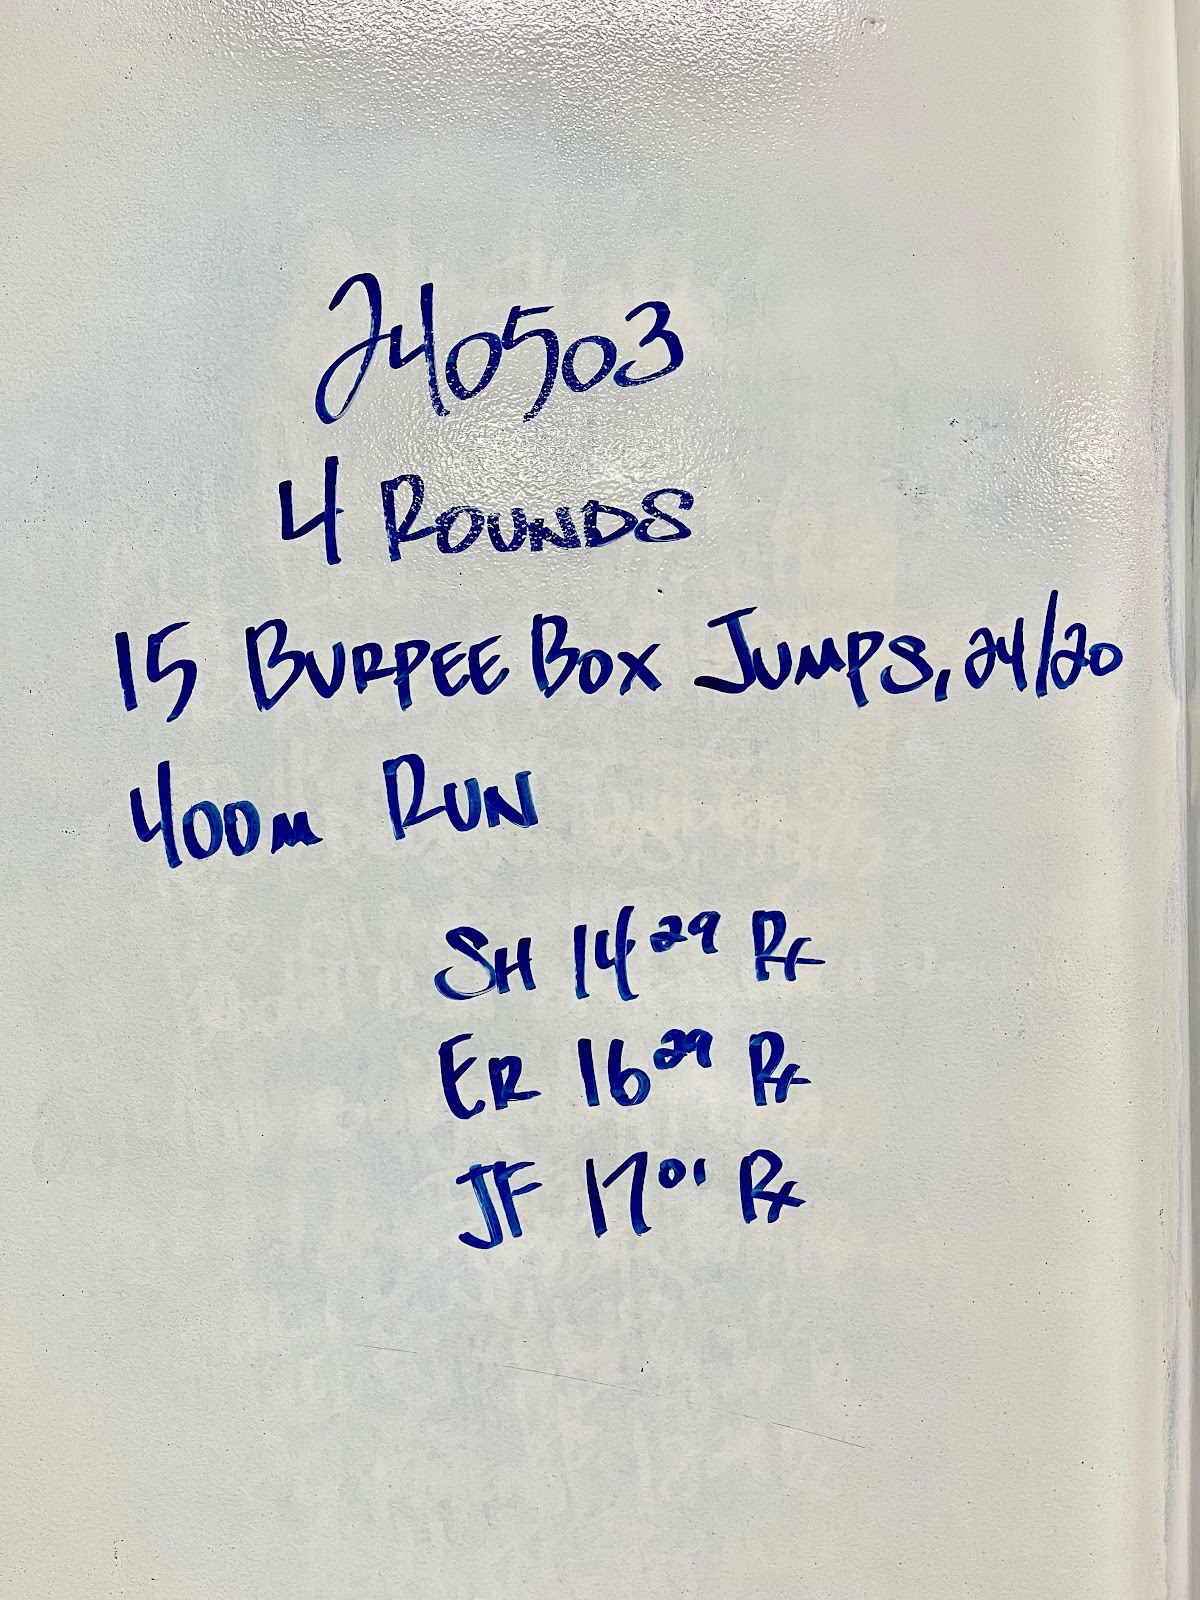 240503
4 ROUNDS
15 BURPEE BOX JUMPS, 24/20
400m RUN
SH 14 29 Rx
ER 16 29 Rx
JF 17 01 Rx